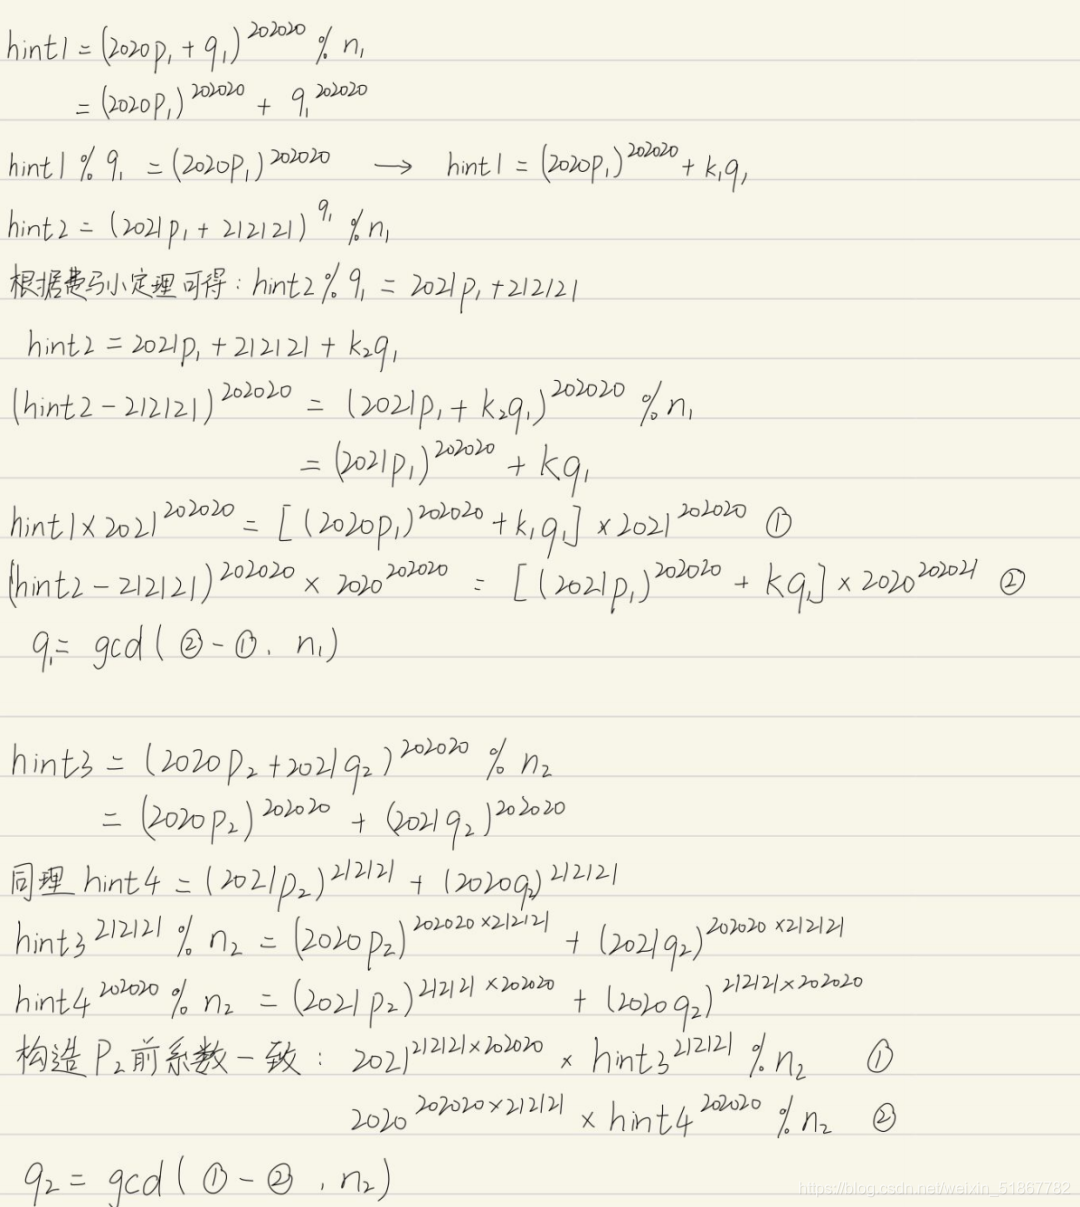 hint1 = (2020p₁ + q₁)^202020 % n₁
= (2020p₁)^202020 + q₁^202020
hint1 % q₁ = (2020p₁)^202020 → hint1 = (2020p₁)^202020 + k₁q₁
hint2 = (2021p₁ + 212121)^q₁ % n₁
根据费马小定理可得: hint2 % q₁ = 2021p₁ + 212121
hint2 = 2021p₁ + 212121 + k₂q₁
(hint2 - 212121)^202020 = (2021p₁ + k₂q₁)^202020 % n₁
= (2021p₁)^202020 + kq₁
hint1 × 2021^202020 = [(2020p₁)^202020 + k₁q₁] × 2021^202020 ①
(hint2 - 212121)^202020 × 2020^202020 = [(2021p₁)^202020 + kq₁] × 2020^202021 ②
q₁ = gcd(② - ①, n₁)
hint3 = (2020p₂ + 2021q₂)^202020 % n₂
= (2020p₂)^202020 + (2021q₂)^202020
同理 hint4 = (2021p₂)^212121 + (2020q₂)^212121
hint3^212121 % n₂ = (2020p₂)^202020×212121 + (2021q₂)^202020×212121
hint4^202020 % n₂ = (2021p₂)^212121×202020 + (2020q₂)^212121×202020
构造P₂前系数一致: 2021^212121×202020 × hint3^212121 % n₂ ①
2020^202020×212121 × hint4^202020 % n₂ ②
q₂ = gcd(① - ②, n₂)
https://blog.csdn.net/weixin_51867782